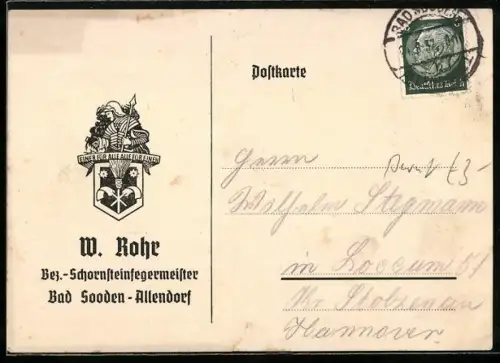 Postkarte
BAD SOODEN
Deutsches Reich
EINER FÜR ALLE ALLE FÜR EINEN
W. Rohr
Bez.-Schornsteinfegermeister
Bad Sooden-Allendorf
Herrn
Wilhelm Stegmann
in Loccum
Kr. Stolzenau
Hannover